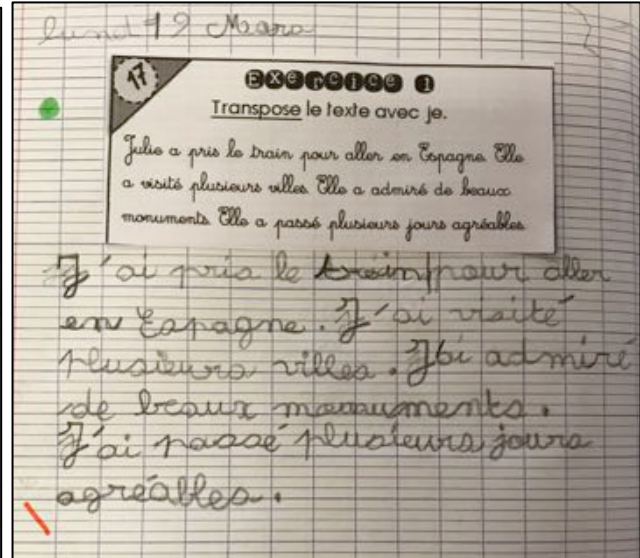 lundi 19 Mars
17
Exercice 1
Transpose le texte avec je.
Julie a pris le train pour aller en Espagne. Elle
a visité plusieurs villes. Elle a admiré de beaux
monuments. Elle a passé plusieurs jours agréables.
J'ai pris le train pour aller
en Espagne. J'ai visité
plusieurs villes. J'ai admiré
de beaux monuments.
J'ai passé plusieurs jours
agréables.